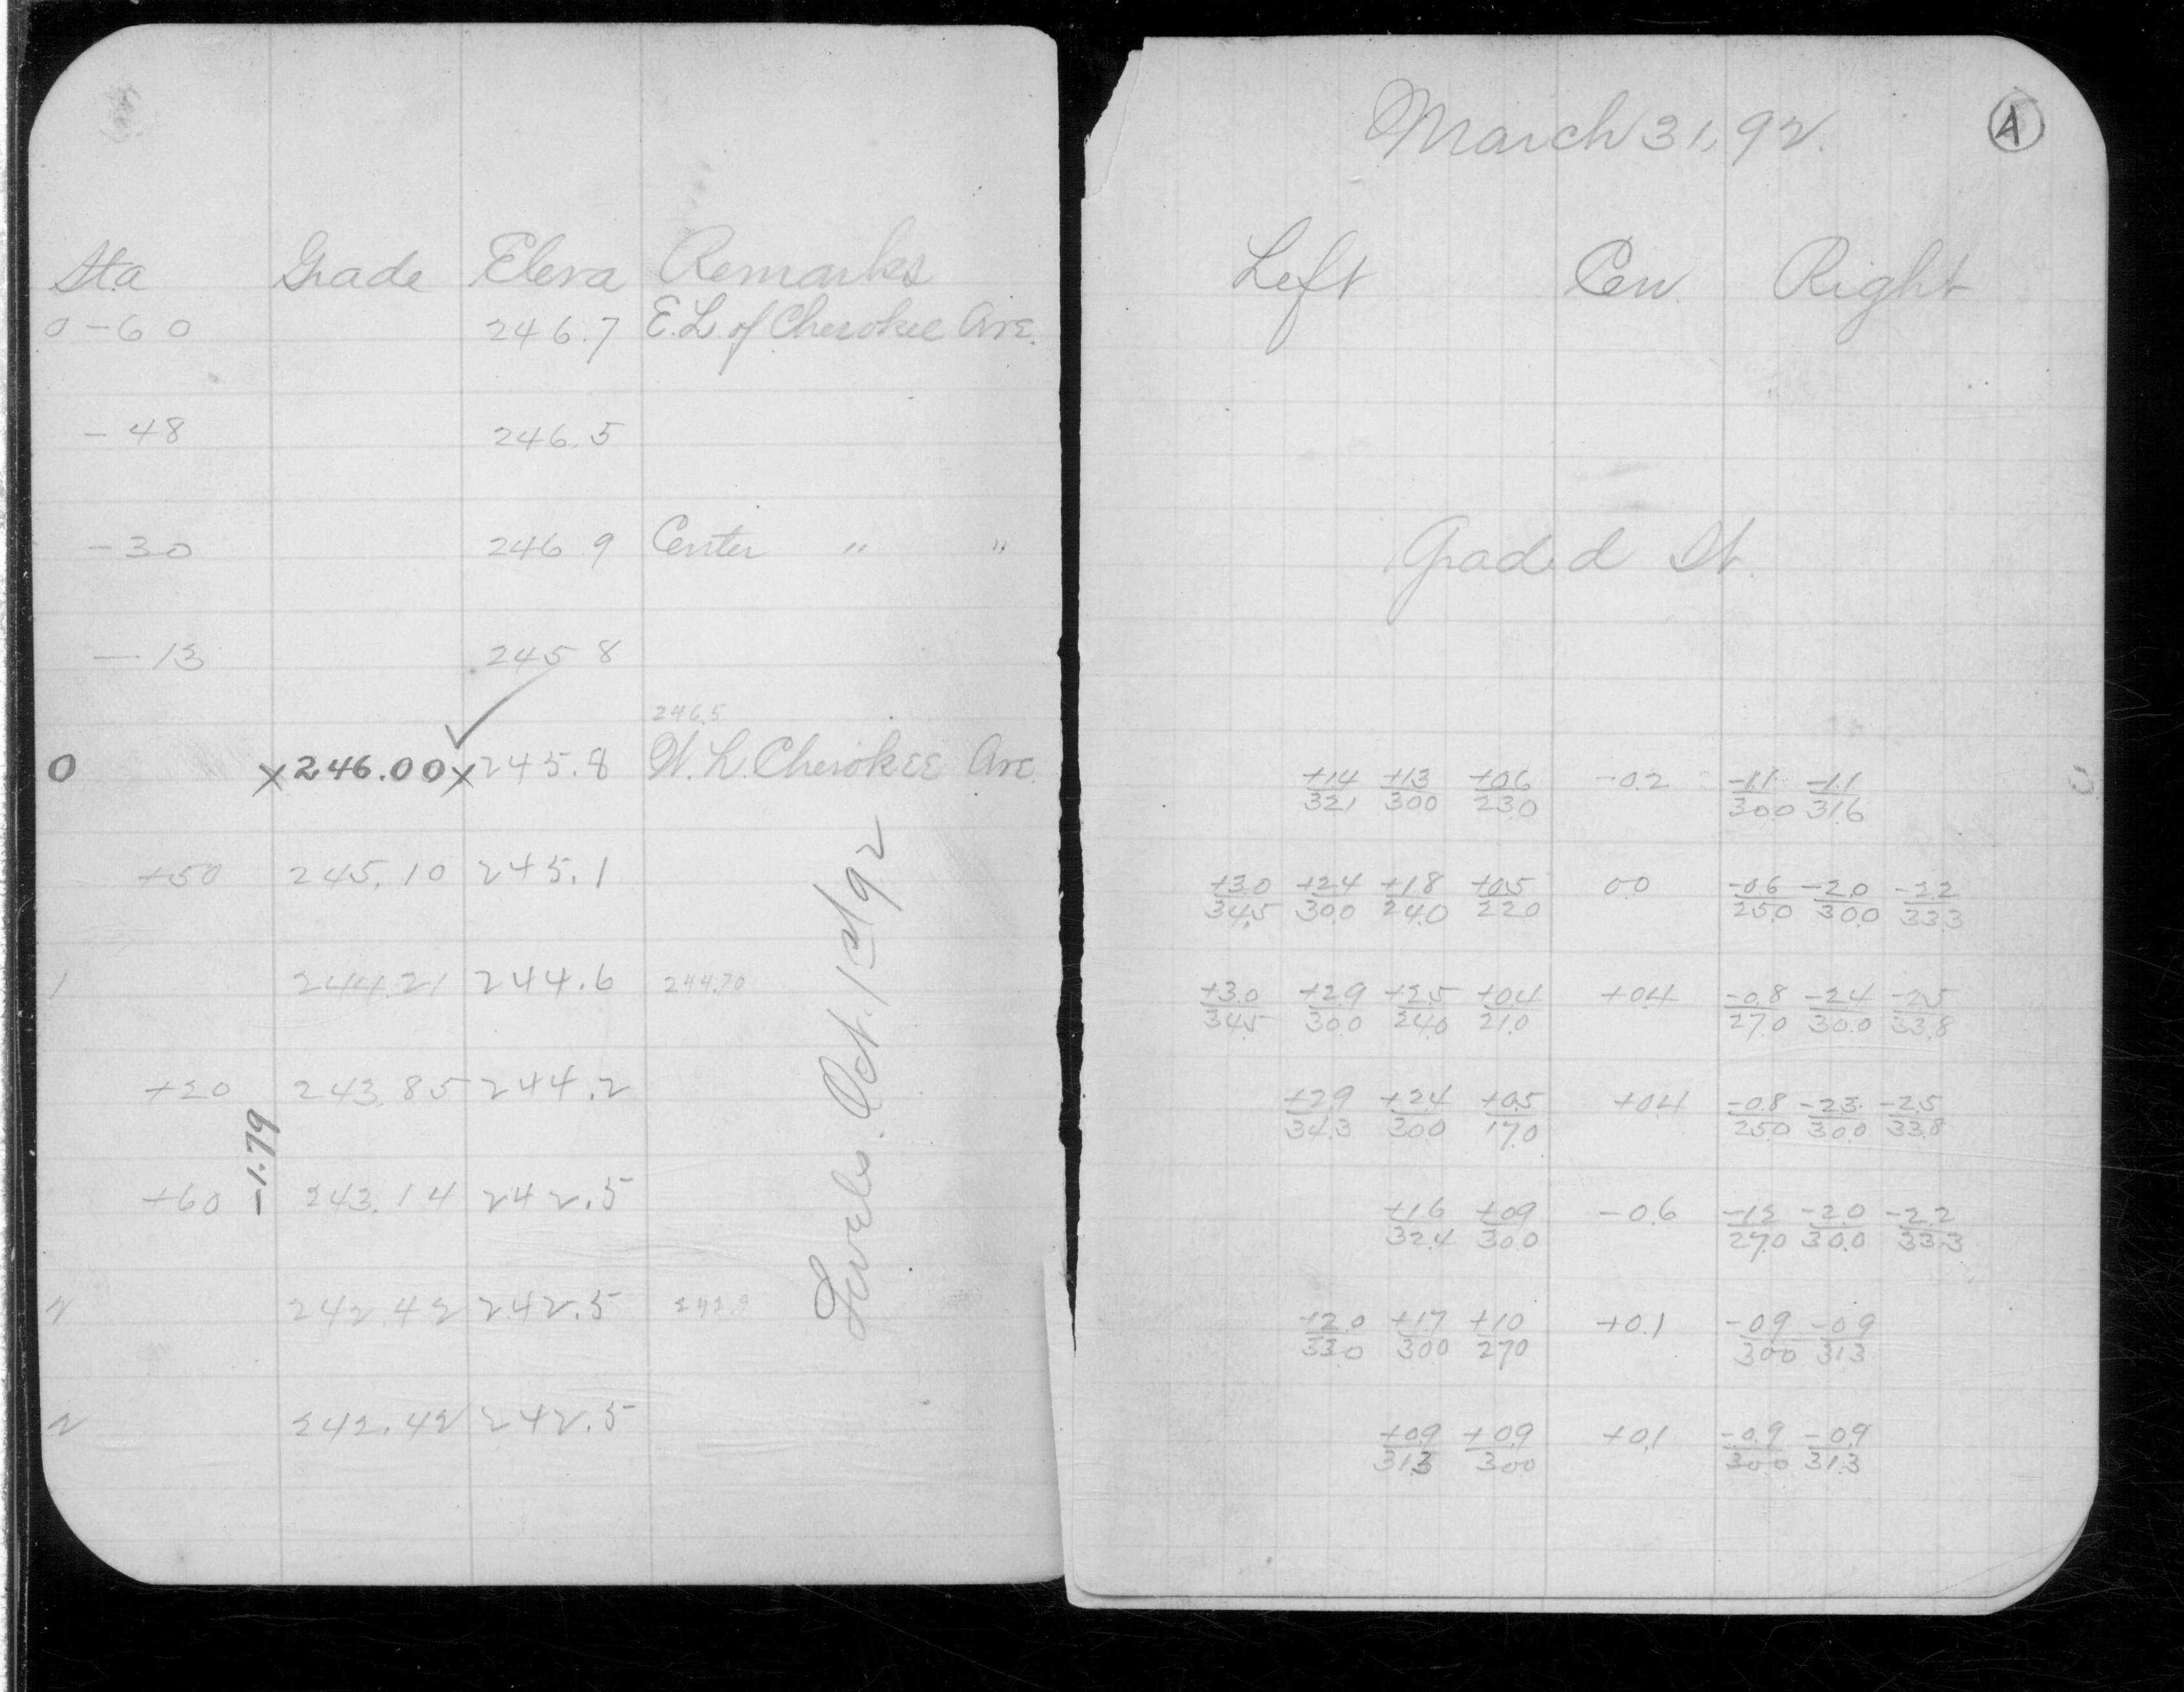 Sta Grade Eleva Remarks
0-60 246.7 E.L. of Cherokee Ave.
-48 246.5
-30 246.9 Center " "
-13 245.8
246.5
0 x246.00x 245.8 W.L. Cherokee Ave.
+50 245.10 245.1
1 244.21 244.6 244.70
+20 243.85 244.2
-1.79
+60 243.14 242.5
2 242.42 242.5 242.9
2 242.42 242.5
Levels. Oct. 1st 92
March 31, 92.
A
Left Cen. Right
Graded St.
+1.4/32.1 +1.3/30.0 +0.6/23.0 -0.2 -1.1/30.0 -1.1/31.6
+3.0/34.5 +2.4/30.0 +1.8/24.0 +0.5/22.0 0.0 -0.6/25.0 -2.0/30.0 -2.2/33.3
+3.0/34.5 +2.9/30.0 +2.5/24.0 +0.4/21.0 +0.4 -0.8/27.0 -2.4/30.0 -2.5/33.8
+2.9/34.3 +2.4/30.0 +0.5/17.0 +0.4 -0.8/25.0 -2.3/30.0 -2.5/33.8
+1.6/32.4 +0.9/30.0 -0.6 -1.2/27.0 -2.0/30.0 -2.2/33.3
+2.0/33.0 +1.7/30.0 +1.0/27.0 +0.1 -0.9/30.0 -0.9/31.3
+0.9/31.3 +0.9/30.0 +0.1 -0.9/30.0 -0.9/31.3